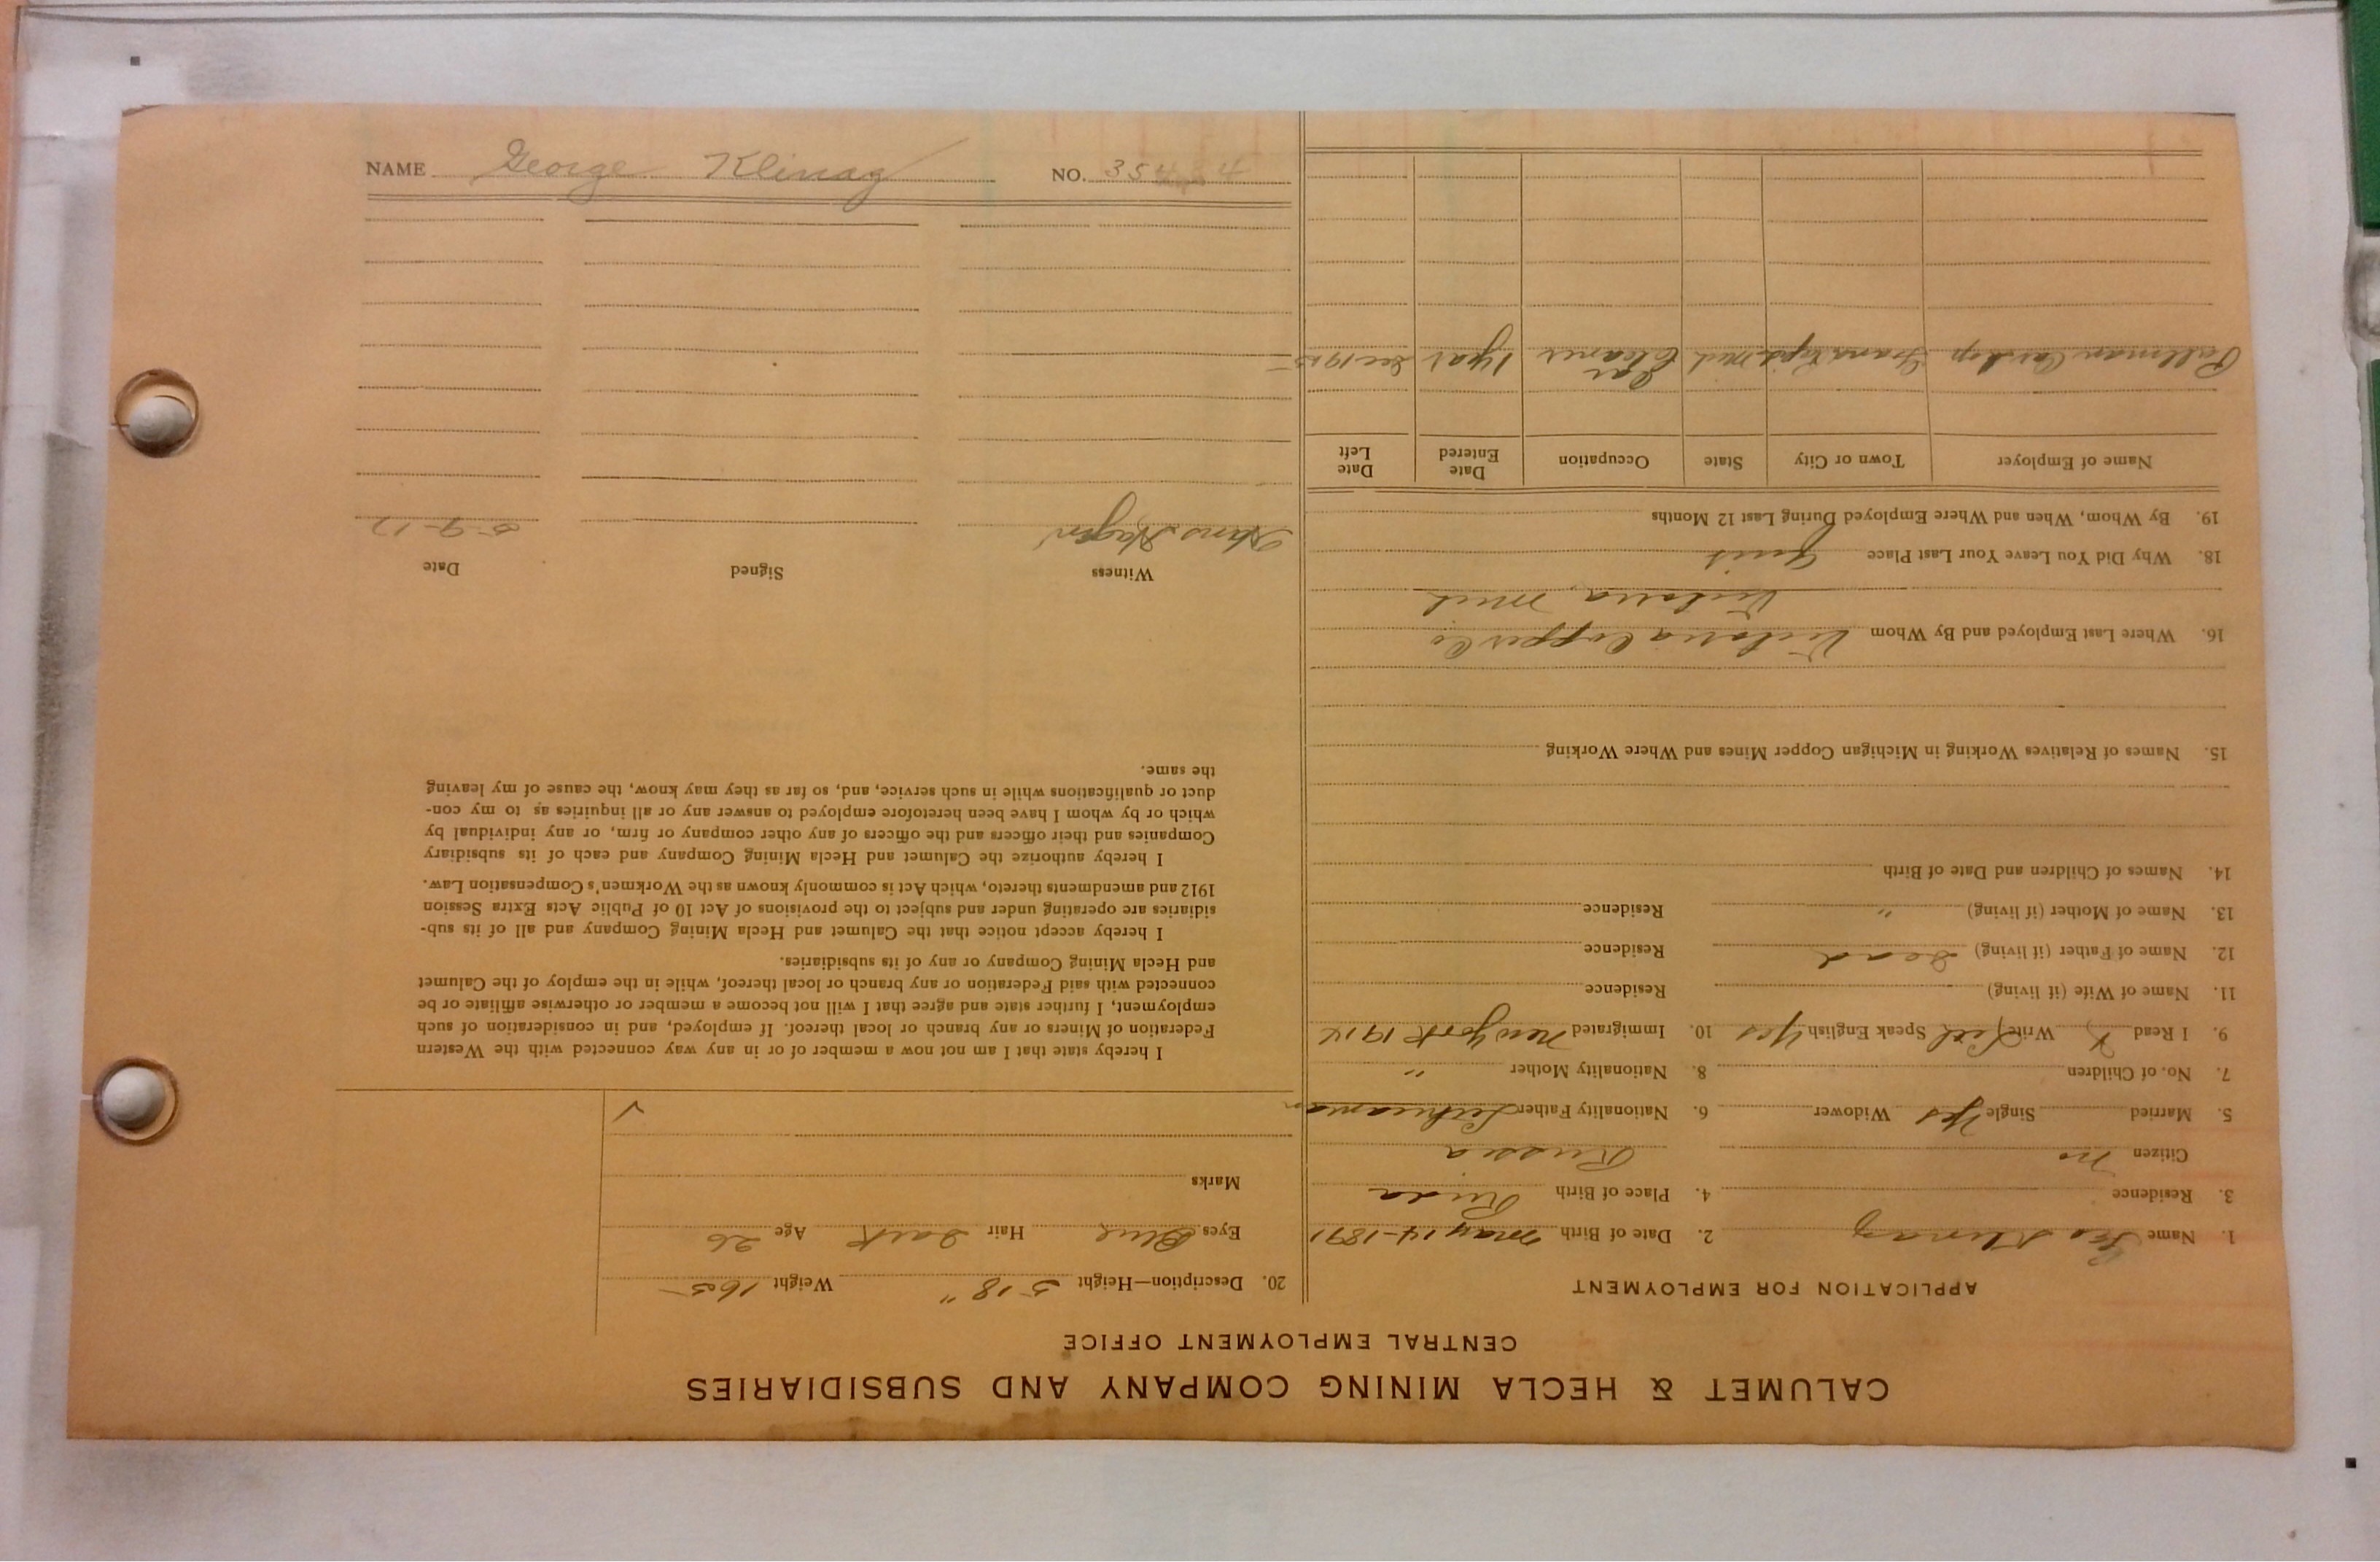 CALUMET & HECLA MINING COMPANY AND SUBSIDIARIES
CENTRAL EMPLOYMENT OFFICE
APPLICATION FOR EMPLOYMENT
1. Name Geo Klinag 2. Date of Birth May 14-1891
3. Residence 4. Place of Birth
Citizen no Russia
5. Married Single Yes Widower 6. Nationality Father
7. No. of Children 8. Nationality Mother "
9. I Read Write Speak English Yes 10. Immigrated New York 1914
11. Name of Wife (if living) Residence
12. Name of Father (if living) Dead Residence
13. Name of Mother (if living) " Residence
14. Names of Children and Date of Birth
15. Names of Relatives Working in Michigan Copper Mines and Where Working
16. Where Last Employed and By Whom Victoria Copper Co
Victoria, Mich
18. Why Did You Leave Your Last Place Quit
19. By Whom, When and Where Employed During Last 12 Months
Name of Employer Town or City State Occupation Date Entered Date Left
Pullman Car Shop Grand Rapids Mich Car Cleaner 1 year Dec 1915
20. Description—Height 5' 8" Weight 165
Eyes Blue Hair Dark Age 26
Marks
I hereby state that I am not now a member of or in any way connected with the Western
Federation of Miners or any branch or local thereof. If employed, and in consideration of such
employment, I further state and agree that I will not become a member or otherwise affiliate or be
connected with said Federation or any branch or local thereof, while in the employ of the Calumet
and Hecla Mining Company or any of its subsidiaries.
I hereby accept notice that the Calumet and Hecla Mining Company and all of its sub-
sidiaries are operating under and subject to the provisions of Act 10 of Public Acts Extra Session
1912 and amendments thereto, which Act is commonly known as the Workmen's Compensation Law.
I hereby authorize the Calumet and Hecla Mining Company and each of its subsidiary
Companies and their officers and the officers of any other company or firm, or any individual by
which or by whom I have been heretofore employed to answer any or all inquiries as to my con-
duct or qualifications while in such service, and, so far as they may know, the cause of my leaving
the same.
Witness Signed Date
5-9-17
NAME George Klinag NO.